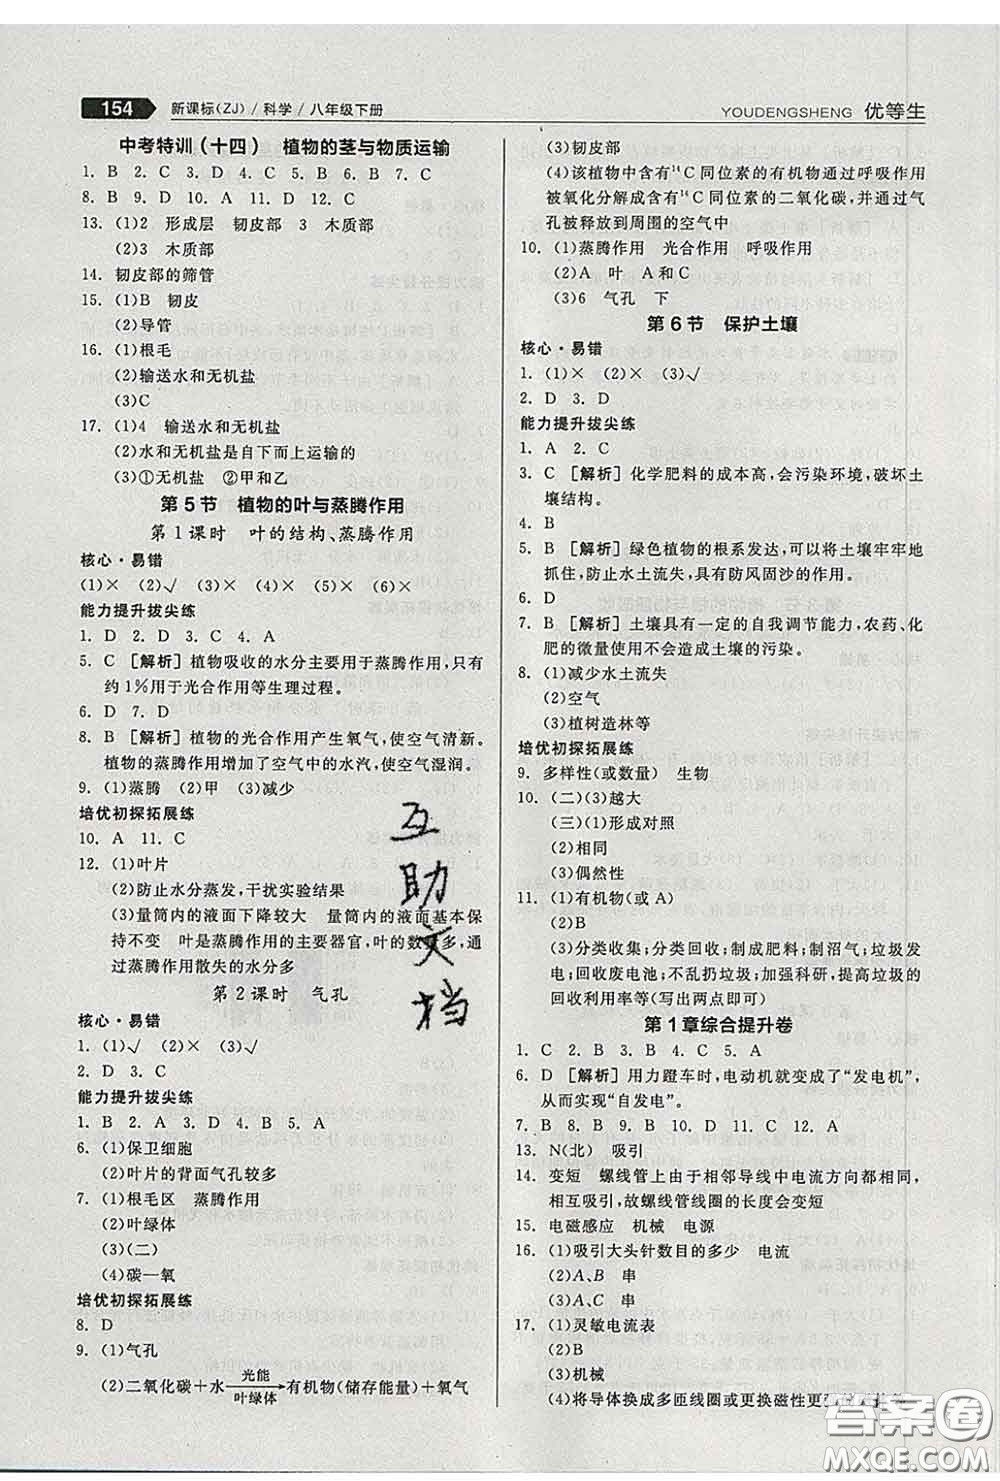 154 新课标(ZJ)/科学/八年级下册
YOUDENGSHENG 优等生
中考特训(十四) 植物的茎与物质运输
1. B 2. C 3. D 4. C 5. A 6. C 7. C
8. B 9. D 10. A 11. D 12. C
13. (1)2 形成层 韧皮部 3 木质部
(2)3 木质部
14. 韧皮部的筛管
15. (1)B 韧皮
(2)导管
16. (1)根毛
(2)输送水和无机盐
(3)C
17. (1)4 输送水和无机盐
(2)水和无机盐是自下而上运输的
(3)①无机盐 ②甲和乙
第5节 植物的叶与蒸腾作用
第1课时 叶的结构、蒸腾作用
核心·易错
(1)× (2)√ (3)× (4)× (5)× (6)×
能力提升拔尖练
1. D 2. D 3. C 4. A
5. C [解析] 植物吸收的水分主要用于蒸腾作用,只有
约1%用于光合作用等生理过程。
6. D 7. D
8. B [解析] 植物的光合作用产生氧气,使空气清新。
植物的蒸腾作用增加了空气中的水汽,使空气湿润。
9. (1)蒸腾 (2)甲 (3)减少
培优初探拓展练
10. A 11. C
12. (1)叶片
(2)防止水分蒸发,干扰实验结果
(3)量筒内的液面下降较大 量筒内的液面基本保
持不变 叶是蒸腾作用的主要器官,叶的数多,通
过蒸腾作用散失的水分多
第2课时 气孔
核心·易错
1. (1)√ (2)× (3)√
2. D 3. C
能力提升拔尖练
1. B 2. A 3. D 4. B 5. A
6. (1)保卫细胞
(2)叶片的背面气孔较多
7. (1)根毛区 蒸腾作用
(2)叶绿体
(3)(二)
(4)碳—氧
培优初探拓展练
8. D
9. (1)气孔
(2)二氧化碳+水 光能 叶绿体 有机物(储存能量)+氧气
(3)韧皮部
(4)该植物中含有¹⁴C同位素的有机物通过呼吸作用
被氧化分解成含有¹⁴C同位素的二氧化碳,并通过气
孔被释放到周围的空气中
10. (1)蒸腾作用 光合作用 呼吸作用
(2)A 叶 A和C
(3)6 气孔 下
第6节 保护土壤
核心·易错
1. (1)× (2)× (3)√
2. D 3. D
能力提升拔尖练
1. A 2. C
3. C [解析] 化学肥料的成本高,会污染环境,破坏土
壤结构。
4. B
5. B [解析] 绿色植物的根系发达,可以将土壤牢牢地
抓住,防止水土流失,具有防风固沙的作用。
6. D
7. B [解析] 土壤具有一定的自我调节能力,农药、化
肥的微量使用不会造成土壤的污染。
8. (1)减少水土流失
(2)空气
(3)植树造林等
培优初探拓展练
9. 多样性(或数量) 生物
10. (二)(3)越大
(三)(1)形成对照
(2)相同
(3)偶然性
11. (1)有机物(或A)
(2)B
(3)分类收集;分类回收;制成肥料;制沼气;垃圾发
电;回收废电池;不乱扔垃圾;加强科研,提高垃圾的
回收利用率等(写出两点即可)
第1章综合提升卷
1. C 2. B 3. D 4. C 5. A
6. D [解析] 用力蹬车时,电动机就变成了“发电机”,
从而实现“自发电”。
7. B 8. B 9. B 10. D 11. D 12. C
13. N(北) 吸引
14. 变短 螺线管上由于相邻导线中电流方向都相同,
相互吸引,故螺线管线圈的长度会变短
15. 电磁感应 机械 电源
16. (1)吸引大头针数目的多少 电流
(2)A、B 串
(3)A、C 串
17. (1)灵敏电流表
(2)B
(3)机械
(4)将导体换成多匝线圈或更换磁性更强的
互
助
文
档
答案圈
MXQE.COM